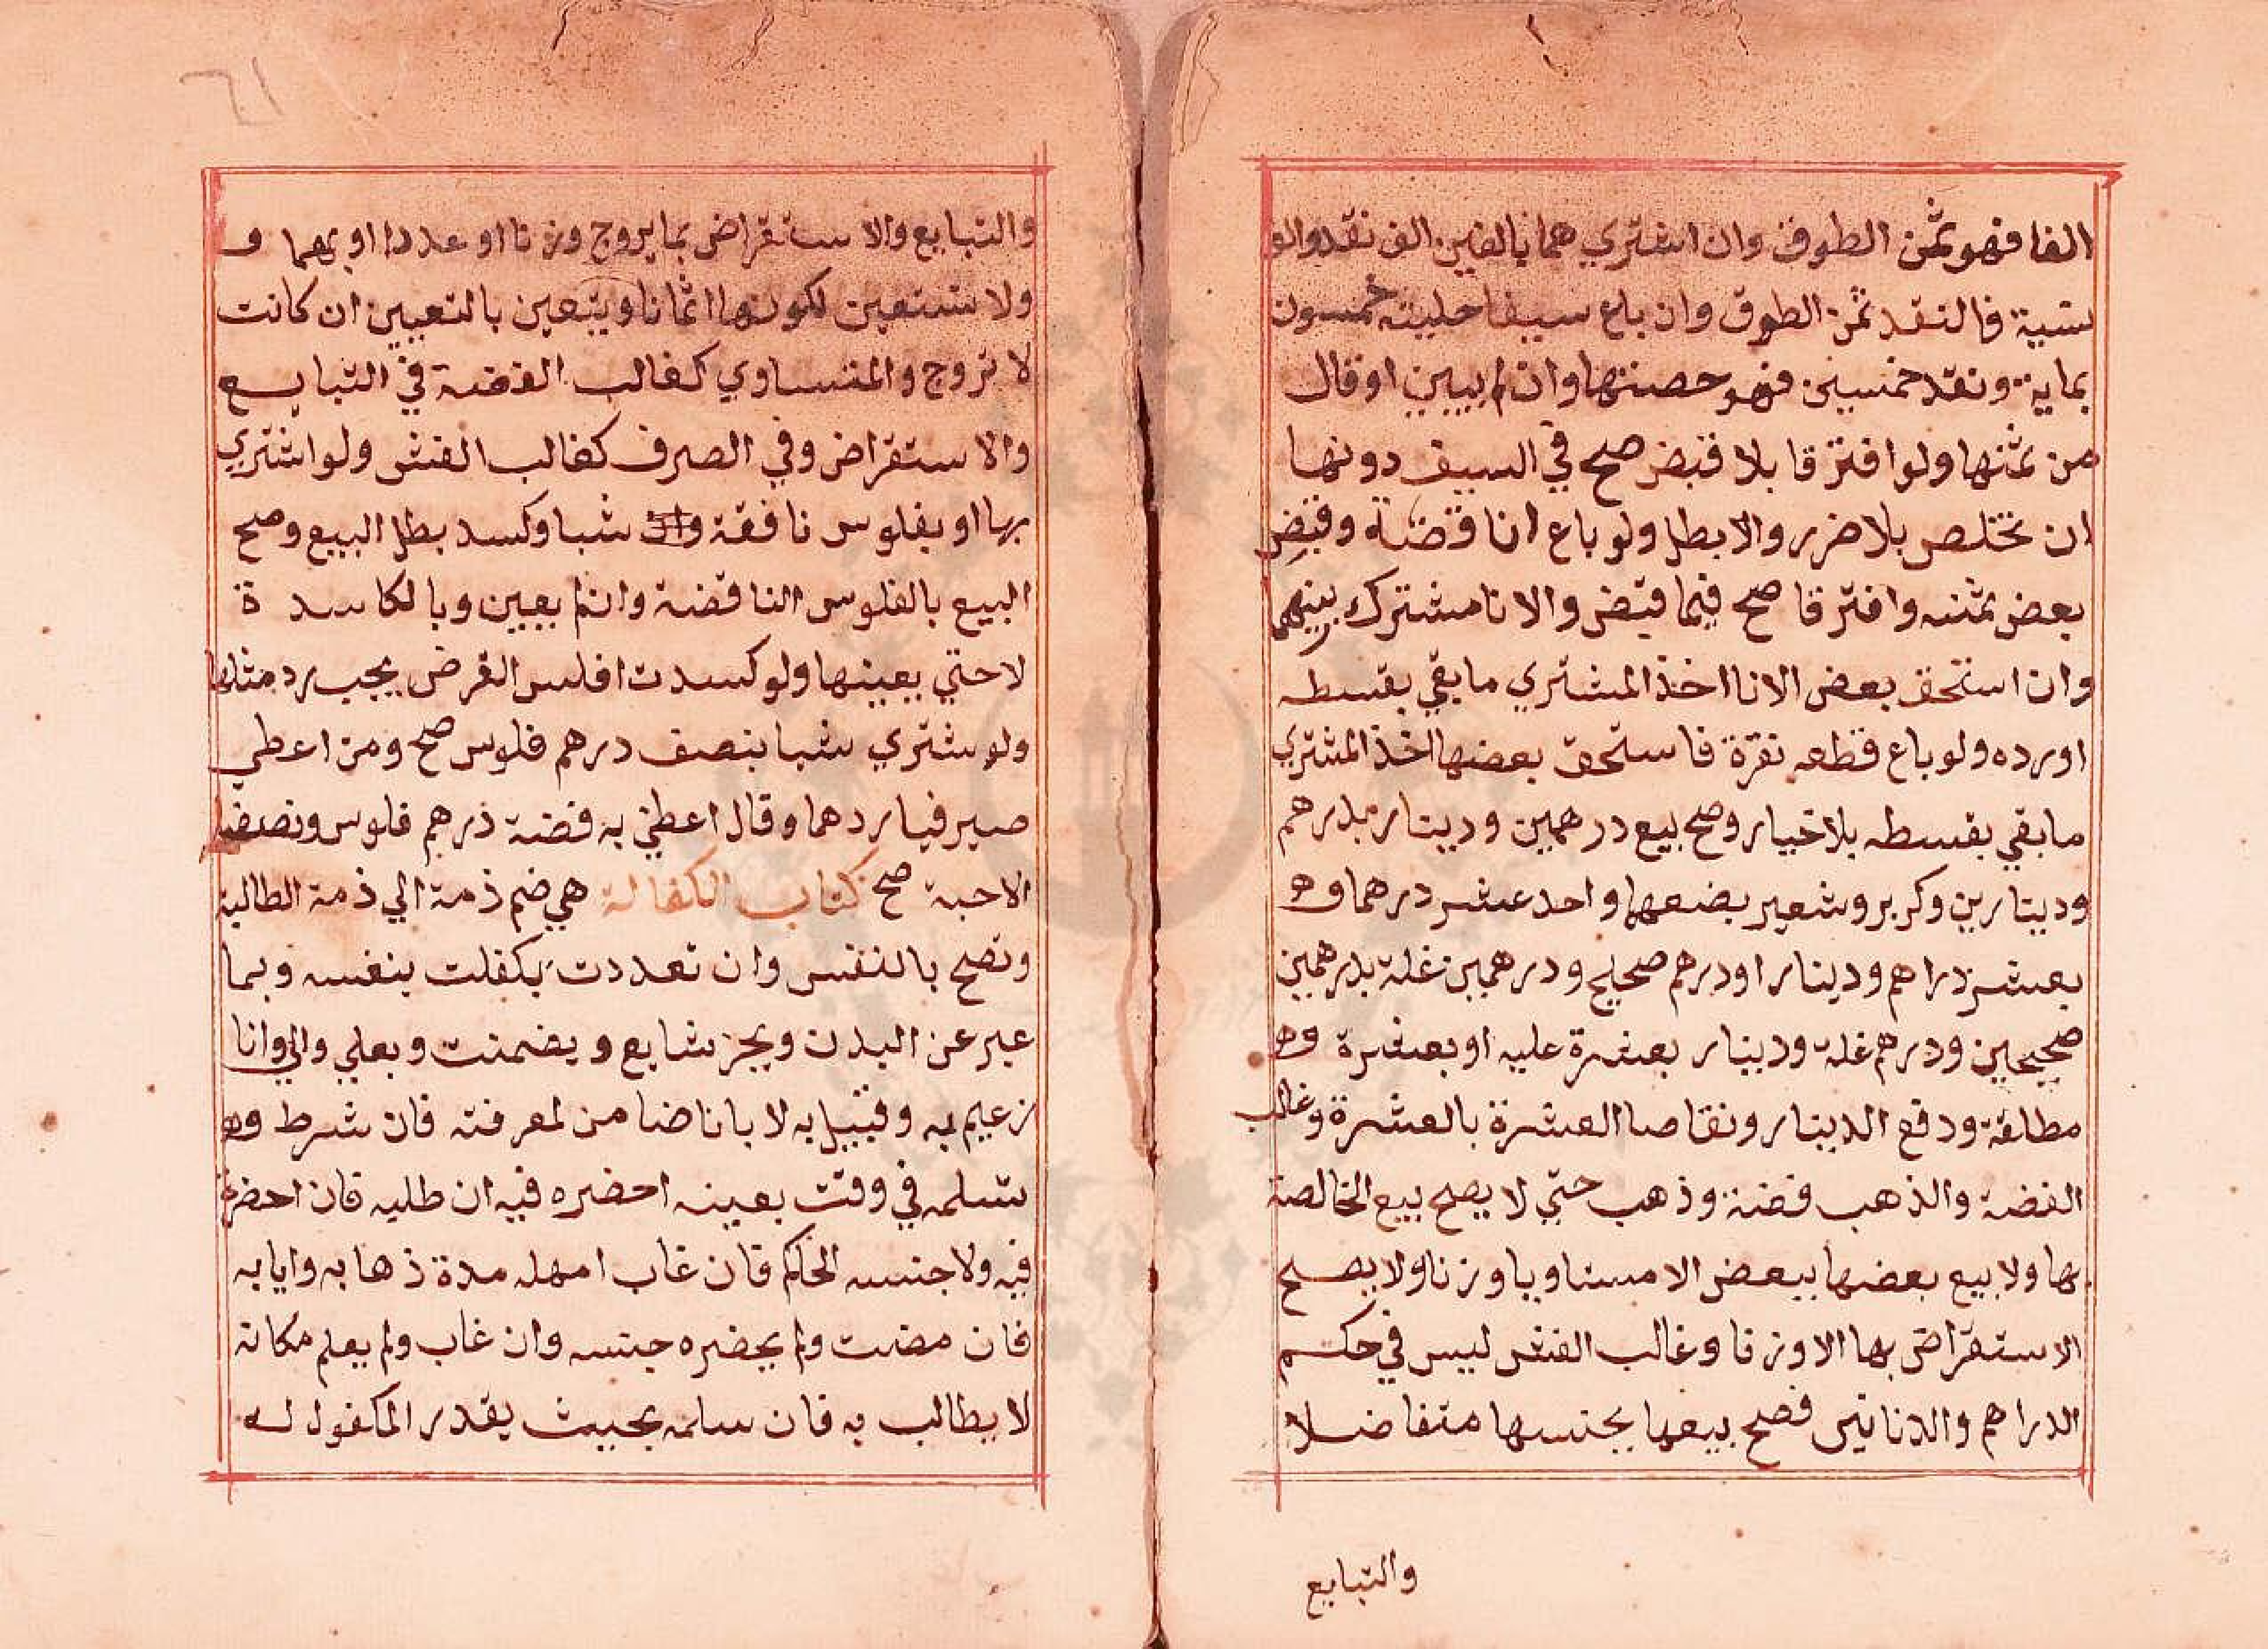 الفا فهو ثمن الطوق وان اشتري هما بالفين الف نقد والو
نسية فالنقد ثمن الطوق وان باع سيفا حليته خمسون
بماية ونقد خمسين فهو حصتها وان لم يبين او قال
من ثمنها ولو افترقا بلا قبض صح في السيف دونها
ان تخلص بلا ضرر والا بطل ولو باع انا فضة وقبض
بعض ثمنه وافترقا صح فيما قبض والانا مشترك بينهما
وان استحق بعض الانا اخذ المشتري ما بقي بقسطه
او رده ولو باع قطعه نقرة فاستحق بعضها اخذ المشتري
ما بقي بقسطه بلا خيار وصح بيع درهمين ودينار بدرهم
ودينارين وكر بر وشعير بضعهما واحد عشر درهما وهو
بعشر دراهم ودينار او درهم صحيح ودرهمين غلة بدرهمين
صحيحين ودرهم غلة ودينار بعشرة عليه او بعشرة وهو
مطلقة ودفع الدينار وتقاصا العشرة بالعشرة وغالب
الفضة والذهب فضة وذهب حتي لا يصح بيع الخالصة
بها ولا بيع بعضها ببعض الا مستاويا وزنا ولا يصح
الاستقراض بها الا وزنا وغالب الغش ليس في حكم
الدراهم والدنانير فصح بيعها بجنسها متفاضلا
والتبايع
٦١
والتبايع والاستقراض بما يروج وزنا او عددا او بهما و
ولا ستتعين لكونها اثمانا ويتعين بالتعيين ان كانت
لا تروج والمتساوي كغالب الفضة في التبايع
والاستقراض وفي الصرف كغالب الغش ولو اشتري
بها او بفلوس نافقة شيا وكسد بطل البيع وصح
البيع بالفلوس النافضة وان لم يعين وبالكاسدة
لا حتي يعينها ولو كسدت افلس القرض يجب رد مثلها
ولو شتري شيا بنصف درهم فلوس صح ومن اعطي
صيرفيا ردهما وقال اعطني به فضة ذرهم فلوس ونصفا
الاحبة صح كتاب الكفالة هي ضم ذمة الي ذمة الطالبة
وتصح بالنفس وان تعددت بكفلت بنفسه وبما
عبر عن البدن وبجز شايع وبضمنت وبعلي والي وانا
زعيم به وقبيل به لا بانا ضامن لمعرفته فان شرط وهو
تسلمه في وقت بعينه احضره فيه ان طلبه فان احضره
فيه ولا جنسه الحاكم فان غاب امهله مدة ذهابه وايابه
فان مضت ولم يحضره جنسه وان غاب ولم يعلم مكانه
لا يطالب به فان سلمه بحيث يقدر المكفول له